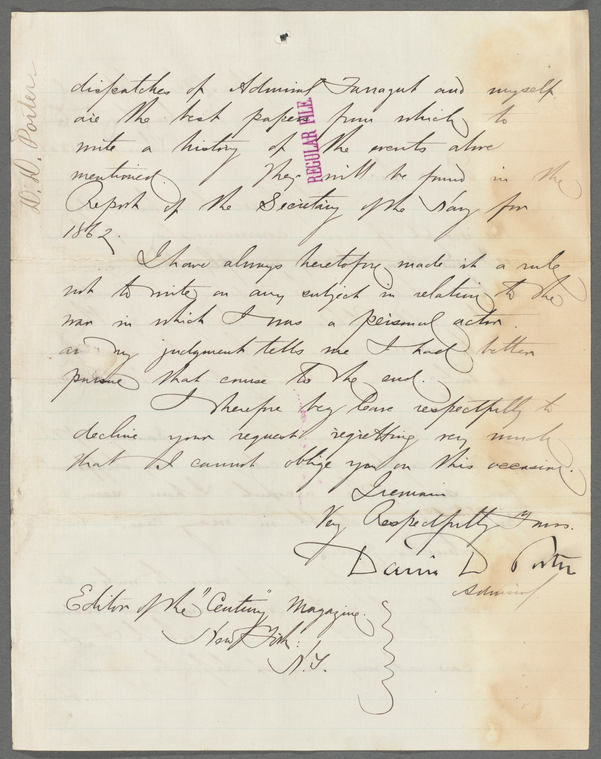 dispatches of Admiral Farragut and myself
are the best papers from which to
write a history of the events above
mentioned. They will be found in the
Report of the Secretary of the Navy for
1862.
I have always heretofore made it a rule
not to write on any subject in relation to the
war in which I was a personal actor.
as my judgment tells me I had better
pursue that course to the end.
I therefore beg leave respectfully to
decline your request regretting very much
that I cannot oblige you on this occasion.
I remain
Very Respectfully Yours.
David D Porter
Admiral
Editor of the "Century" Magazine.
New York:
N.Y.
REGULAR FILE.
D. D. Porter.